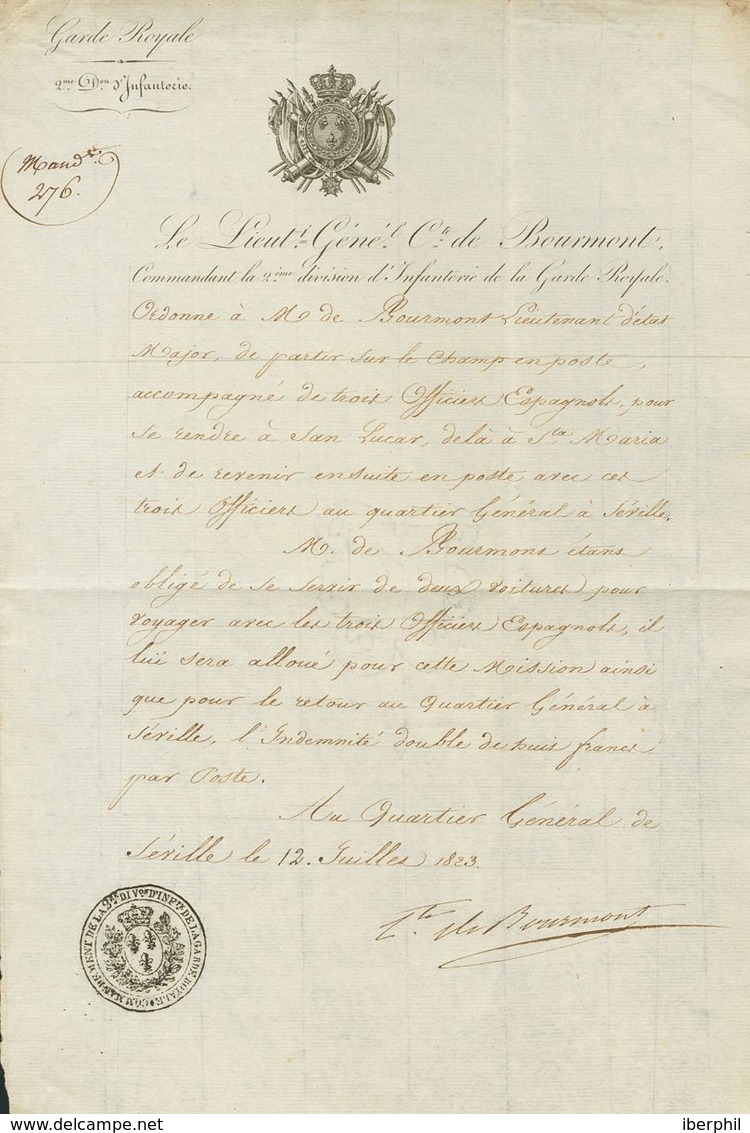 Garde Royale
2.me D.on d'Infanterie.
Mand.t
276.
Le Lieut.t Géné.l C.te de Bourmont,
Commandant la 2.ème division d'Infanterie de la Garde Royale.
Ordonne à M de Bourmont Lieutenant d'état
Major, de partir sur le champ en poste,
accompagné de trois Officiers Espagnols, pour
se rendre à San Lucar, delà à S.ta Maria
et de revenir ensuite en poste avec ces
trois Officiers au quartier Général à Séville.
M. de Bourmont étant
obligé de se servir de deux voitures pour
voyager avec les trois Officiers Espagnols, il
lui sera alloué pour cette Mission ainsi
que pour le retour au Quartier Général à
Séville, l'Indemnité double de huit francs
par Poste.
Au Quartier Général de
Séville le 12 Juillet 1823.
C.te de Bourmont
COMMANDEMENT DE LA 2.me DIV.on D'INF.rie DE LA GARDE ROYALE
www.delcampe.net
iberphil